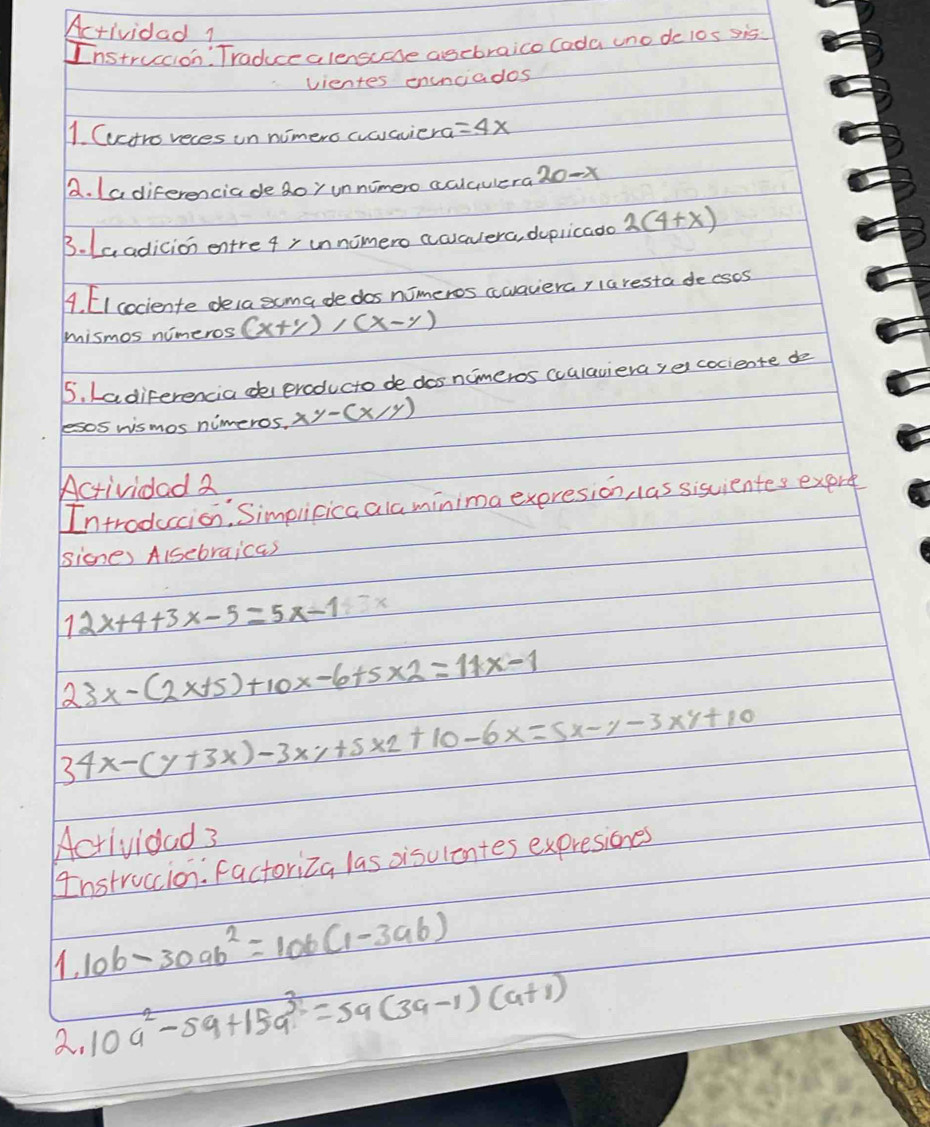 Actividad 1
Instrucción: Traduce al lenguaje algebraico Cada uno de los sig.
uientes enunciados
1. Cuatro veces un número cualquiera = 4x
2. La diferencia de 20 y un número cualquiera 20-x
3. La adición entre 4 y un número cualquiera, duplicado 2(4+x)
4. El cociente de la suma de dos números cualquiera y la resta de esos
mismos números (x+y) / (x-y)
5. La diferencia del producto de dos números cualquiera y el cociente de
esos mismos números. xy-(x/y)
Actividad 2
Introducción: Simplifica a la mínima expresión, las siguientes expre
siones Algebraicas
1 2x+4+3x-5=5x-1
2 3x-(2x+5)+10x-6+5x2=11x-1
3 4x-(y+3x)-3xy+5x2+10-6x=5x-y-3xy+10
Actividad 3
Instrucción: Factoriza las siguientes expresiones
1. 10b-30ab²=10b(1-3ab)
2. 10a²-5a+15a³=5a(3a-1)(a+1)